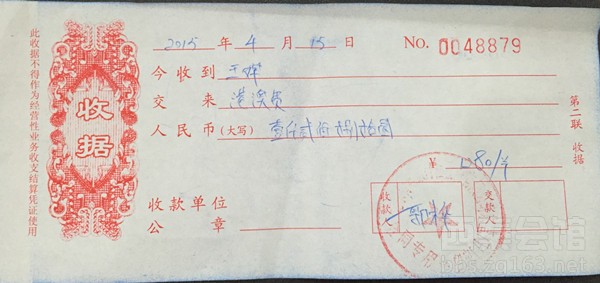 2015 年 4 月 15 日 NO. 0048879
今收到 王辉
交来
人民币(大写) 壹仟贰佰捌拾圆
¥ 1280/元
收款单位
公章
收款人
交款人
第二联 收据
收据
此收据不得作为经营性业务收支结算凭证使用
西祠会馆
bbszq163.net